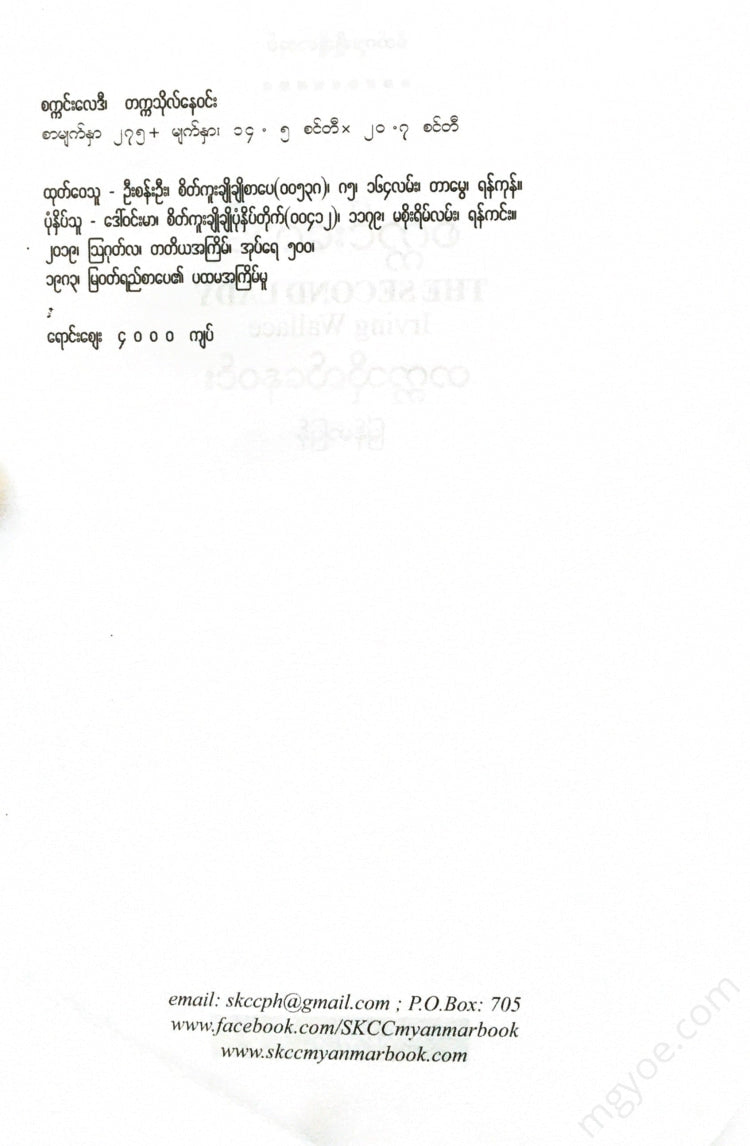 စက္ကင်းလေဒီ၊ တက္ကသိုလ်နေဝင်း
စာမျက်နှာ ၂၇၅+ မျက်နှာ၊ ၁၄ . ၅ စင်တီ× ၂၀ .၇ စင်တီ
ထုတ်ဝေသူ - ဦးစန်းဦး၊ စိတ်ကူးချိုချိုစာပေ(၀၀၅၃၈)၊ ၈၅၊ ၁၆၄လမ်း၊ တာမွေ၊ ရန်ကုန်။
ပုံနှိပ်သူ - ဒေါ်ဝင်းမာ၊ စိတ်ကူးချိုချိုပုံနှိပ်တိုက်(၀၀၄၁၂)၊ ၁၁၇၉၊ မစိုးရိမ်လမ်း၊ ရန်ကင်း။
၂၀၁၉၊ ဩဂုတ်လ၊ တတိယအကြိမ်၊ အုပ်ရေ ၅၀၀၊
၁၉၈၃၊ မြဝတ်ရည်စာပေ၏ ပထမအကြိမ်မူ
ရောင်းဈေး ၄ ၀ ၀ ၀ ကျပ်
THE SECOND LADY
Irving Wallace
တက္ကသိုလ်နေဝင်း
မြန်မာပြန်
email: skccph@gmail.com ; P.O.Box: 705
www.facebook.com/SKCCmyanmarbook
www.skccmyanmarbook.com
mgyoe.com